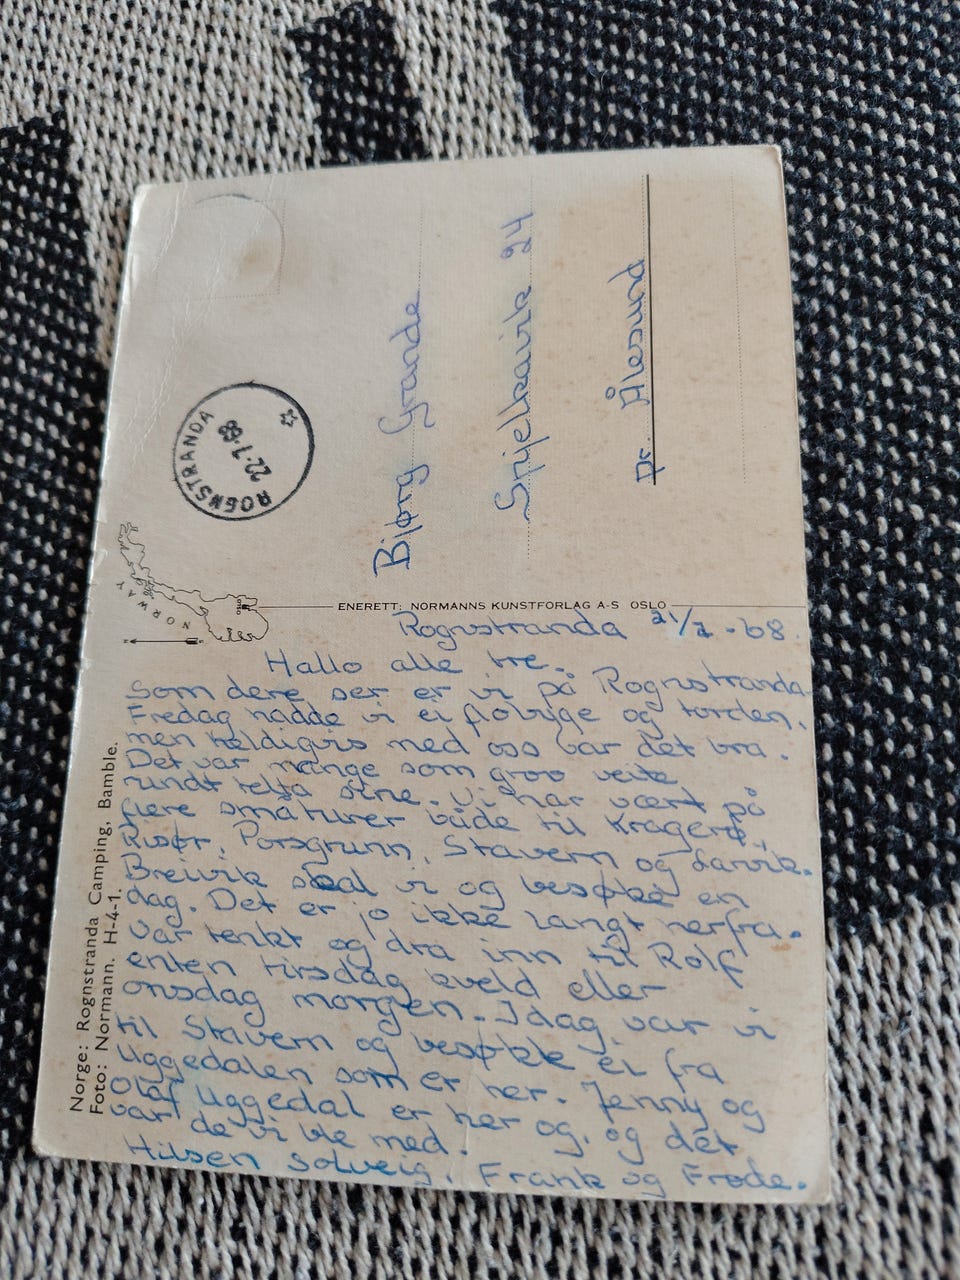 ROGNSTRANDA
22·7·68
Bjørg Grande
Spjelkavik 24
pr. Ålesund
NORWAY
OSLO
ENERETT: NORMANNS KUNSTFORLAG A-S OSLO
Norge: Rognstranda Camping, Bamble.
Foto: Normann. H-4-1.
Rognstranda 21/7-68.
Hallo alle tre.
Som dere ser er vi på Rognstranda.
Fredag hadde vi ei flobyge og torden,
men heldigvis med oss var det bra.
Det var mange som grov veite
rundt telta sine. Vi har vært på
flere småturer både til Kragerø,
Risør, Porsgrunn, Stavern og Larvik.
Breivik skal vi og besøke en
dag. Det er jo ikke langt herfra.
Var tenkt og dra inn til Rolf
enten tirsdag kveld eller
onsdag morgen. Idag var vi
til Stavern og besøkte ei fra
Uggedalen som er her. Jenny og
Olaf Uggedal er her og, og det
var de vi ble med.
Hilsen Solveig, Frank og Frode.